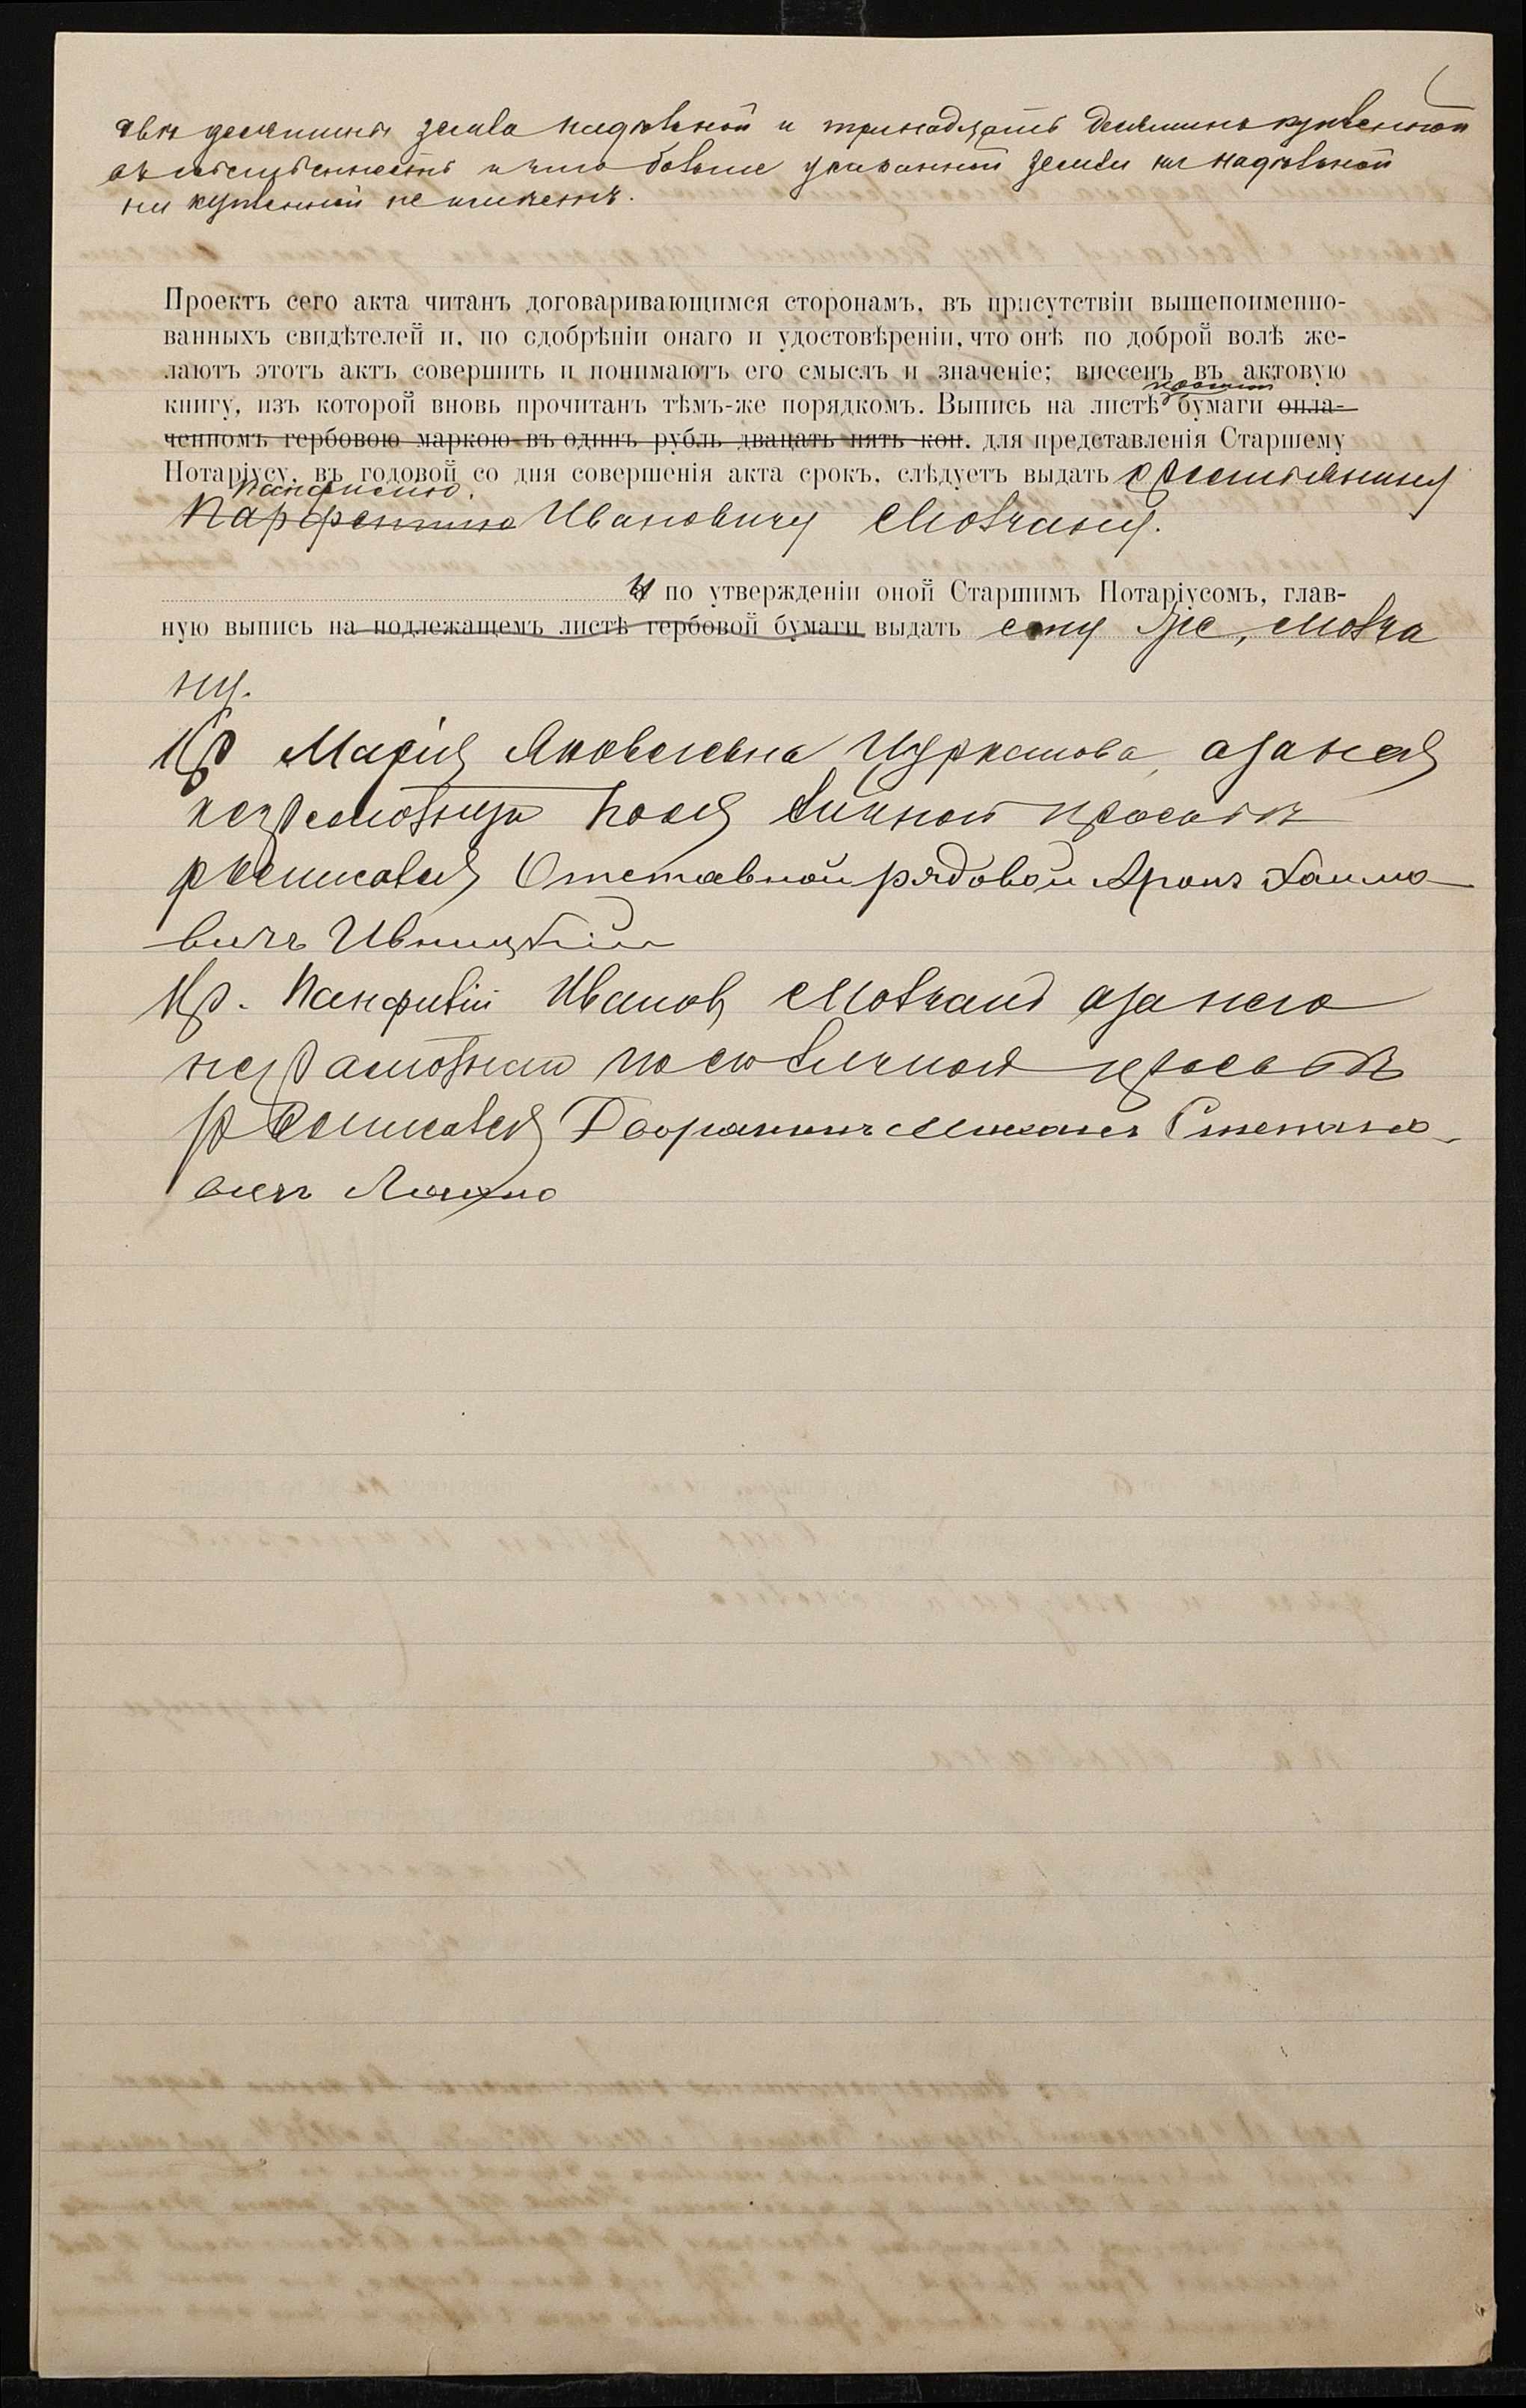 двѣ десятины земли надѣльной и тринадцать десятинъ купленной
въ собственность и что больше указанной земли ни надѣльной
ни купленной не имѣетъ.
Проектъ сего акта читанъ договаривающимся сторонамъ, въ присутствіи вышепоименно-
ванныхъ свидѣтелей и, по сдобрѣніи онаго и удостовѣреніи, что онѣ по доброй волѣ же-
лаютъ этотъ актъ совершить и понимаютъ его смыслъ и значеніе; внесенъ въ актовую
простой
книгу, изъ которой вновь прочитанъ тѣмъ-же порядкомъ. Выпись на листѣ бумаги опла-
ченномъ гербовою маркою въ одинъ рубль двацать пять коп. для представленія Старшему
Нотаріусу, въ годовой со дня совершенія акта срокъ, слѣдуетъ выдать крестьянину
Панфилію
Ивановичу Молчану.
И по утвержденіи оной Старшимъ Нотаріусомъ, глав-
ную выпись на подлежащемъ листѣ гербовой бумаги выдать ему же, Молча
ну.
Кр Марія Яковлевна Цурканова, а за нея
неграмотную по ея личной просьбѣ
росписался Отставной рядовой Аронъ Хаимо
вичъ Ивницкій
Кр. Панфилій Ивановъ Молчанъ а за него
неграмотнаго по его личной просьбѣ
росписался Дворянинъ Михаилъ Степано
вичъ